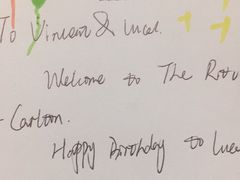 To Vincent & Lucel.
Welcome to The Ritz
- Carlton.
Happy Birthday to